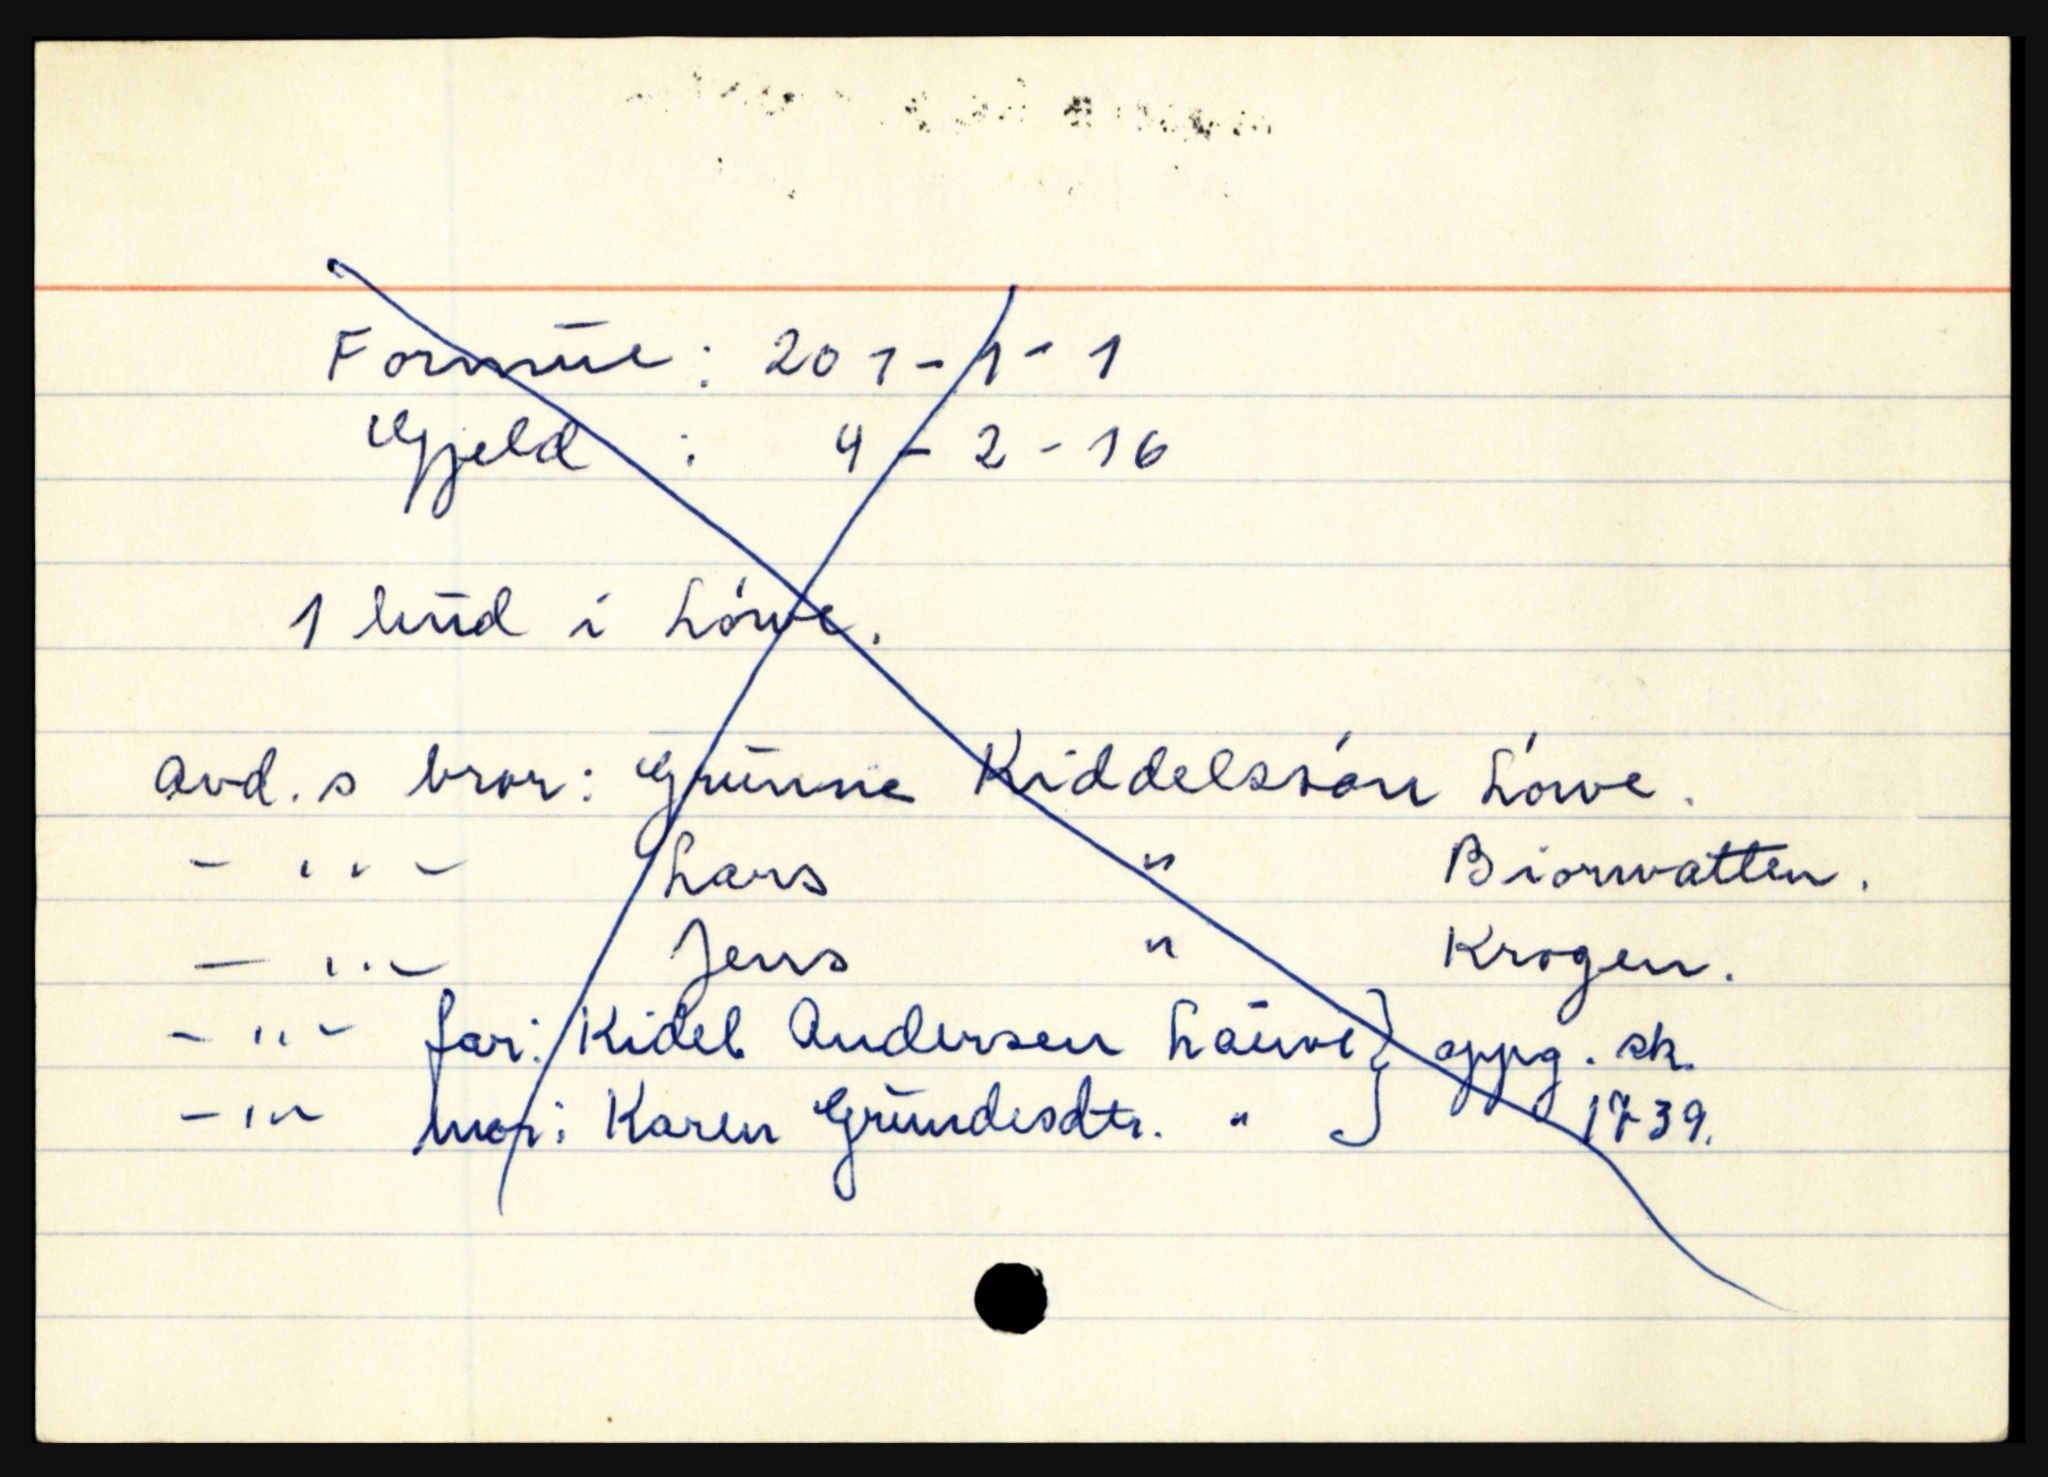 Formue: 201-1-1
Gjeld : 4-2-16
1 hud i Lówe.
Avd. s bror: Grunne Kiddelssón Lówe.
- " - Lars " Biorwatten.
- " - Jens " Krogen.
- " - far: Kidel Andersen Lauwe } oppg. sk.
- " - mor: Karen Grundesdtr. " } 1739.